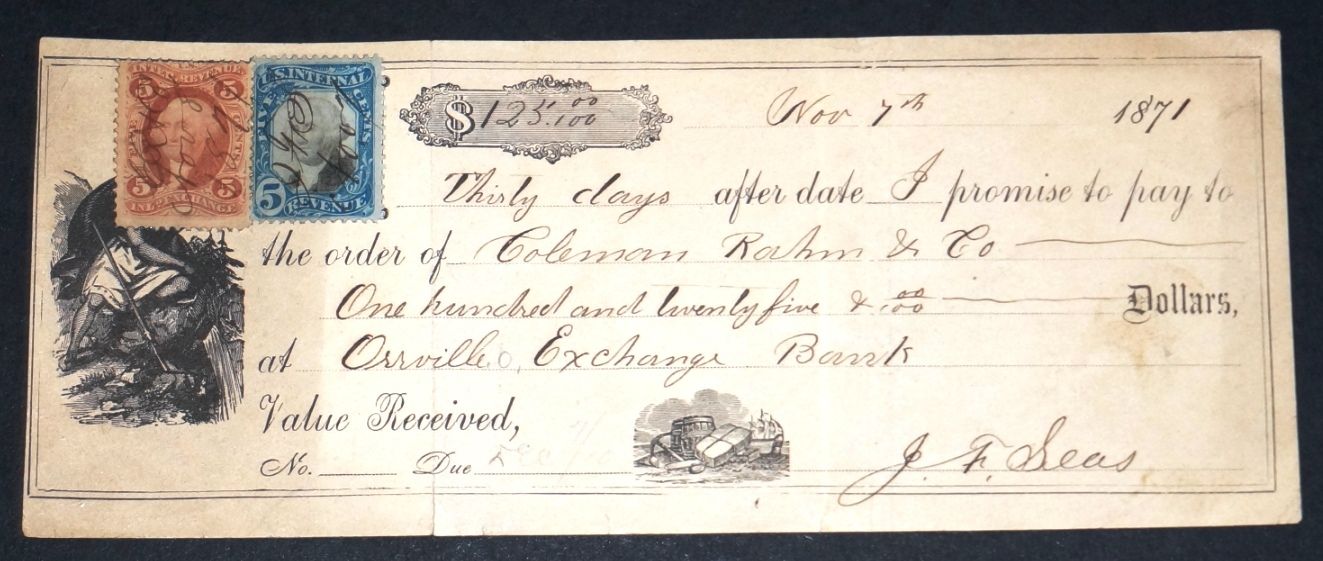 INTER. REVENUE
5 5
FIVE CENTS
5 5
INL. EXCHANGE
U.S. INTERNAL
FIVE CENTS
5 REVENUE
$125.00/100 Nov 7th 1871
Thirty days after date I promise to pay to
the order of Coleman Rahm & Co
One hundred and twenty five & 00/00 Dollars,
at Orrville O, Exchange Bank
Value Received,
No. Due Dec
J. F. Seas